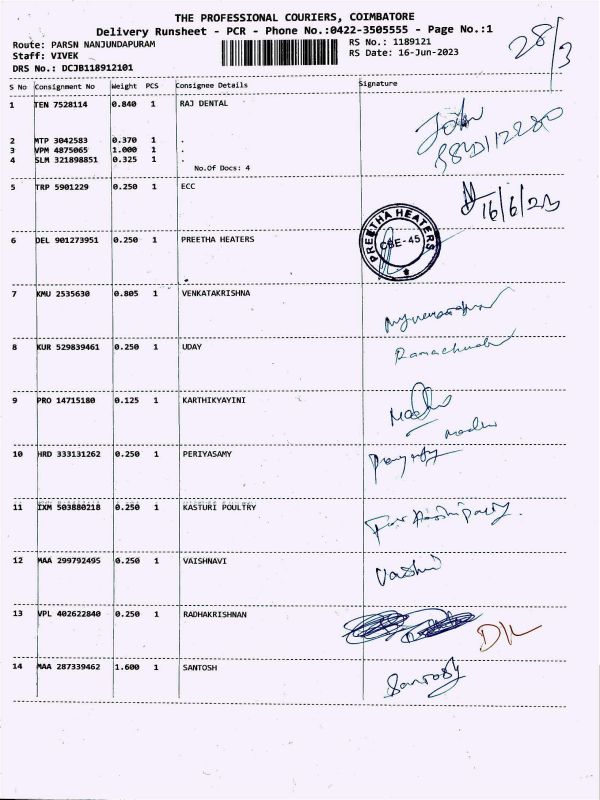 THE PROFESSIONAL COURIERS, COIMBATORE
Delivery Runsheet - PCR - Phone No.:0422-3505555 - Page No.:1
28/3
Route: PARSN NANJUNDAPURAM RS No.: 1189121
Staff: VIVEK RS Date: 16-Jun-2023
DRS No.: DCJB118912101
S No Consignment No Weight PCS Consignee Details Signature
1 TEN 7528114 0.840 1 RAJ DENTAL John
2 MTP 3042583 0.370 1 .
3 VPM 4875065 1.000 1 .
4 SLM 321898851 0.325 1 .
No.Of Docs: 4
5 TRP 5901229 0.250 1 ECC 16/6/23
6 DEL 901273951 0.250 1 PREETHA HEATERS PREETHA HEATERS CBE-45
7 KMU 2535630 0.805 1 VENKATAKRISHNA
8 KUR 529839461 0.250 1 UDAY
9 PRO 14715180 0.125 1 KARTHIKYAYINI Madhu
10 HRD 333131262 0.250 1 PERIYASAMY
11 IXM 503880218 0.250 1 KASTURI POULTRY
12 MAA 299792495 0.250 1 VAISHNAVI Vaishu
13 VPL 402622840 0.250 1 RADHAKRISHNAN D/L
14 MAA 287339462 1.600 1 SANTOSH Santosh